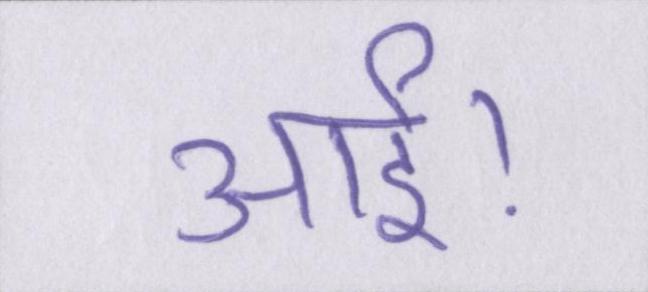 आई!